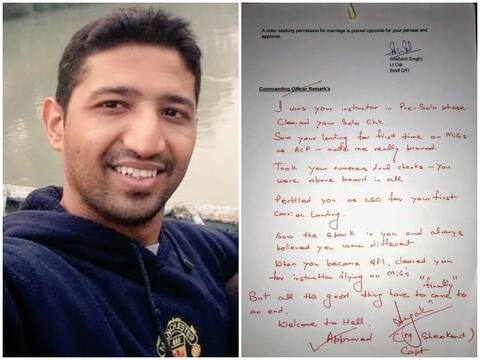 A letter seeking permission for marriage is placed opposite for your perusal and
approval.
(Nishant Singh)
Lt Cdr
Staff QFI
Commanding Officer Remark's
I was your instructor in Pre-Solo phase
Cleared your Solo Chk.
Saw your landing for first time on MiGs
as ACP - made me really proud.
Took your numerous dual checks - you
were above board in all.
Peddled you as LSO for your first
carrier landing.
Saw the spark in you and always
believed you were different.
When you became QFI, cleared you
for instruction flying on MiGs
"finally"
But all the good thing have to come to
an end.
Welcome to Hell.
Approved
(M Sheokand)
Capt